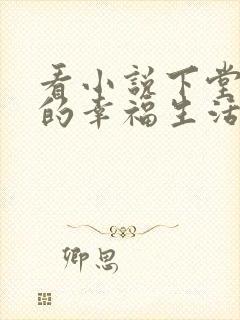 看小说下堂
的幸福生活
卿思